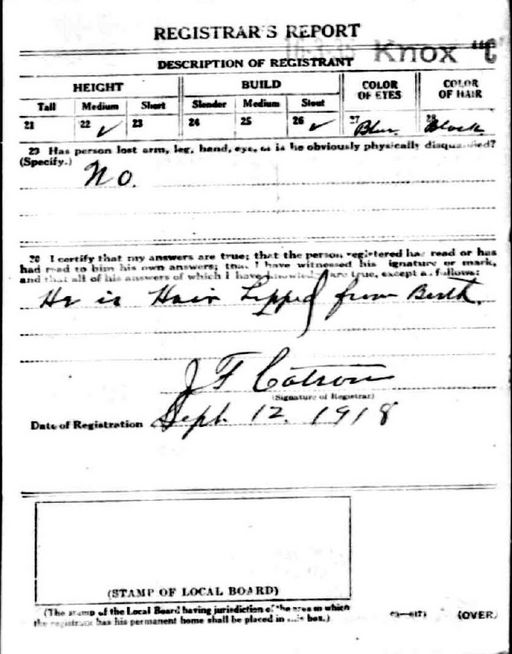 REGISTRAR'S REPORT
16-3-35 Knox "C"
DESCRIPTION OF REGISTRANT
HEIGHT BUILD COLOR OF EYES COLOR OF HAIR
Tall Medium Short Slender Medium Stout
21 22 ✓ 23 24 25 26 ✓ 27 Blue 28 Black
29 Has person lost arm, leg, hand, eye, or is he obviously physically disqualified?
(Specify.)
No.
30 I certify that my answers are true; that the person registered has read or has
had read to him his own answers; that I have witnessed his signature or mark,
and that all of his answers of which I have knowledge are true, except as follows:
He is Hair Lipped from Birth.
J F Catron
(Signature of Registrar)
Date of Registration Sept. 12, 1918
(STAMP OF LOCAL BOARD)
(The stamp of the Local Board having jurisdiction of the area in which
the registrant has his permanent home shall be placed in this box.)
(OVER)